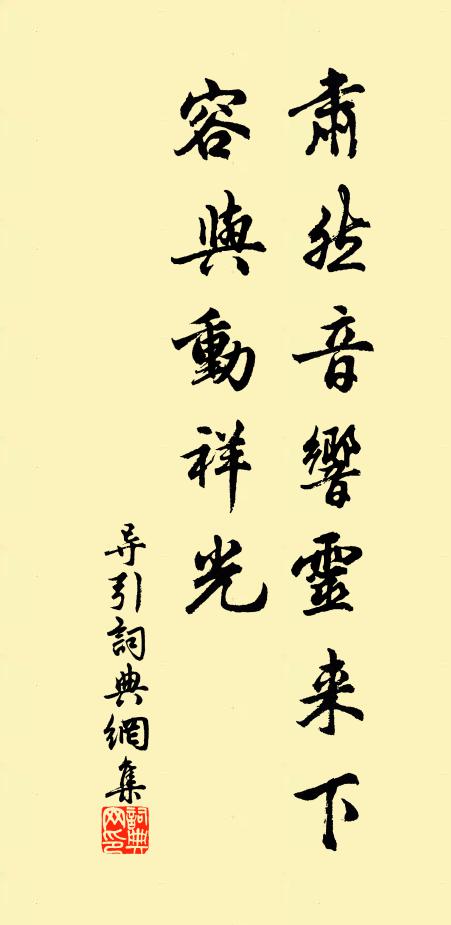 肅然音響靈来下
容與動祥光
导引詞典網集
詞典
网印